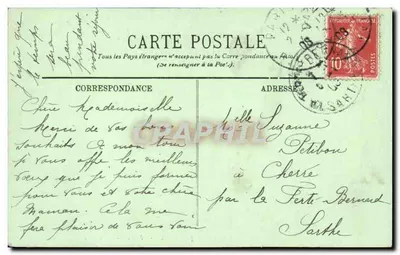 CARTE POSTALE
Tous les Pays étrangers n'acceptent pas la Correspondance au
(Se renseigner à la Poste).
CORRESPONDANCE
ADRESSE
Chère Mademoiselle
Merci de vos bons
souhaits à mon tour
je vous offre les meilleurs
vœux que je puis former
pour vous et votre chère
Maman. Cela me
fera plaisir de vous
Melle Suzanne
Petibon
à
Cherré
par la Ferté Bernard
Sarthe
le temps
beau
pendant
votre séjour
10
POSTES